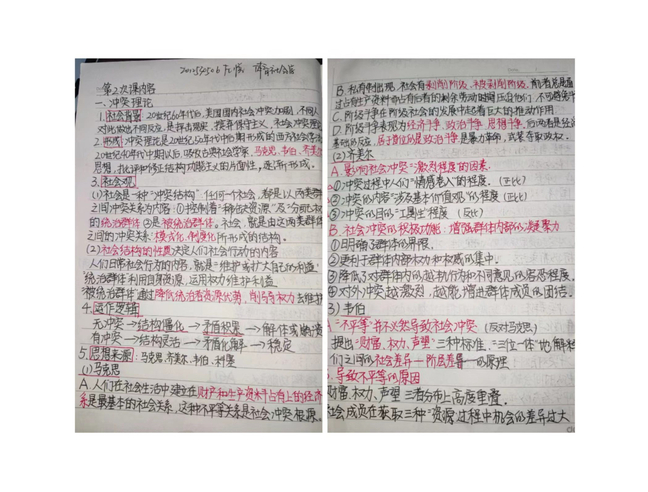 第2次课内容
一、冲突理论
1.社会背景 20世纪60年代后,美国国内社会冲突加剧,不同人
2.形成:冲突理论是20世纪50年代中后期形成的西方社会学
20世纪40年代中期以后,吸收古典社会学家,马克思,韦伯,齐美尔
思想,批评和修正结构功能主义的片面性,逐渐形成。
3.社会观
(1)社会是一种“冲突结构”任何一个社会,都是以两类群
之间冲突关系为内容:①控制着“稀缺资源”及“分配之权
的统治群体 ②是被统治群体。社会就是由这两类群体
之间的冲突关系模式化、制度化所形成的结构。
(2)社会结构的性质决定人们社会行动的内容
人们日常社会行为的内容,就是“维护或扩大自己的利益”
“统治群体”利用自身资源,运用权力维护利益
“被统治群体”通过降低统治者资源优势,削弱权力去维护
4.运作逻辑
无冲突→结构僵化→矛盾积累→解体或崩溃
有冲突→结构灵活→矛盾化解→稳定
5.思想来源:马克思、齐美尔、韦伯、
(1)马克思
A.人们在社会生活中建立在财产和生产资料占有上的经济
系是最基本的社会关系,这种不平等关系是社会冲突根源。
B.私有制出现,社会有剥削阶级、被剥削阶级,前者总是通
过占有生产资料而占有后者的剩余劳动时
C.阶级斗争在阶级社会的发展中起着巨大的推动作用
D.阶级斗争表现为经济斗争、政治斗争、思想斗争,
基础的反应,居于首位的是政治斗争
(2)齐美尔
A.影响社会冲突“激烈程度”的因素.
①冲突过程中人们“情感卷入”的程度.(正比)
②冲突的内容“涉及基本价值观”的程度(正比)
③冲突的目的“工具性”程度 (反比)
B.社会冲突的积极功能:增强群体内部的凝聚力
①明确了群体的界限.
②更利于群体内部权力和权威的集中.
③降低了对群体内的越轨行为和不同意见的容忍程度.
④对外冲突越激烈,越能增进群体成员的团结。
3)韦伯
A“不平等”并不必然导致社会冲突 (反对马克思)
提出“财富、权力、声望”三种标准,“三位一体”地解释
们之间的社会差异—阶层差异—的原理
导致不平等的原因
财富、权力、声望三者分布上高度重叠.
社会成员在获取三种“资源”过程中机会的差异过大